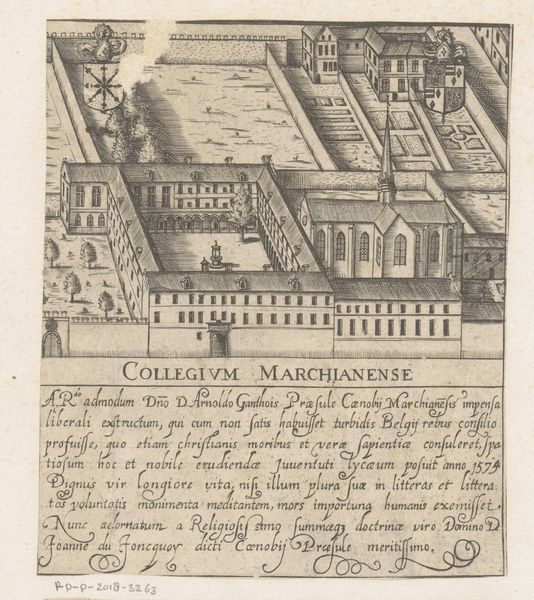 COLLEGIVM MARCHIANENSE
A R.do admodum Dño D. Arnoldo Ganthois Præsule Cœnobij Marchianẽsis impensa
liberali exstructum, qui cum non satis habuisset turbidis Belgij rebus consilio
profuisse, quo etiam christianis moribus et veræ sapientiæ consuleret, spa
tiosum hoc et nobile erudiendæ Juuentuti lycæum posuit anno, 1574
Dignus vir longiore vita, nisi illum plura suæ in litteras et littera-
tos voluntatis monimenta meditantem, mors importuna humanis exemisset.
Nunc adornatum a Religiosissimo summæq₃ doctrinæ viro Domino D
Joanne du Joncquoy dicti Cœnobij Præsule meritissimo.
RP-P-2018-3263